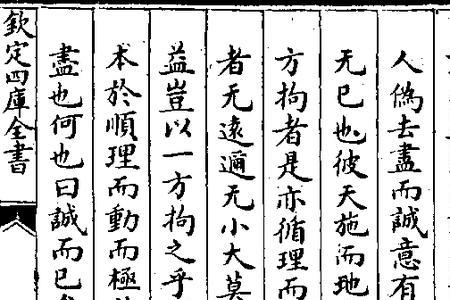 人僞去盡而誠意有
无已也彼天施而地
方拘者是亦循理而
者无逺邇无小大莫
益豈以一方拘之乎
本於順理而動而極
盡也何也曰誠而已
欽定四庫全書